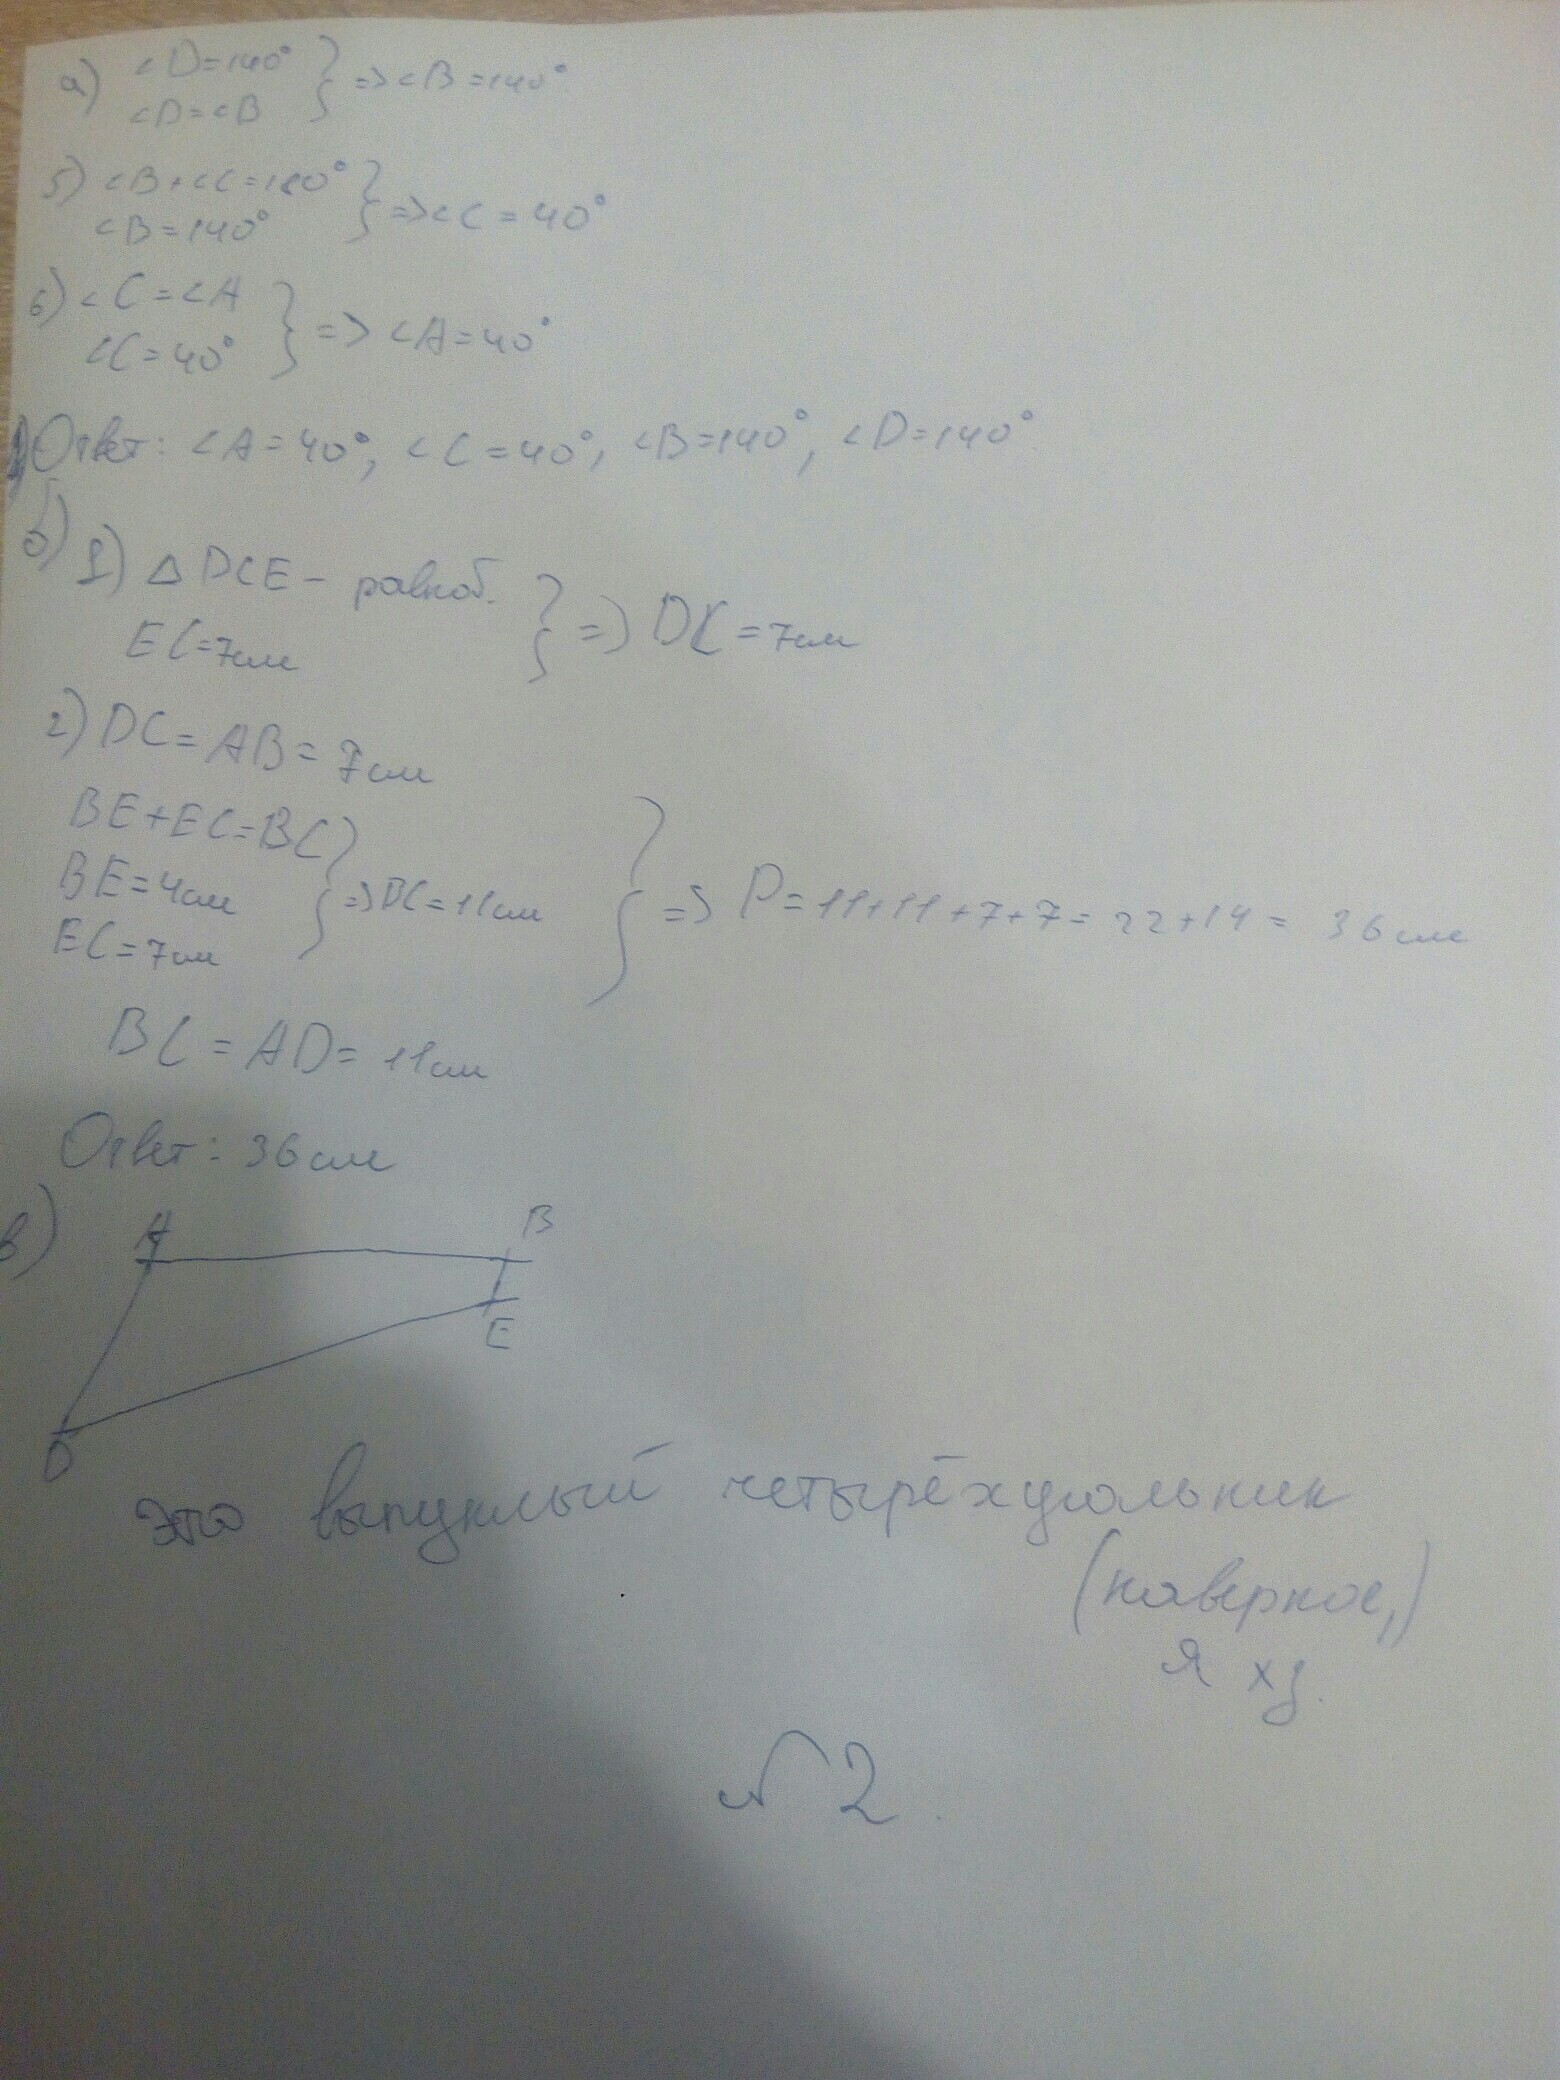 а) ∠D=140°
∠D=∠B } => ∠B=140°.
5) ∠B+∠C=180°
∠B=140° } => ∠C=40°
6) ∠C=∠A
∠C=40° } => ∠A=40°
Ответ: ∠A=40°, ∠C=40°, ∠B=140°, ∠D=140°.
б) 1) △ DCE - равноб.
EC=7см } => DC=7см
2) DC=AB=7см
BE+EC=BC
BE=4см } => BC=11см } => P=11+11+7+7=22+14=36см
EC=7см
BC=AD=11см
Ответ: 36см
в) A B
E
D
это выпуклый четырёхугольник
(наверное,)
я хз.
№2.